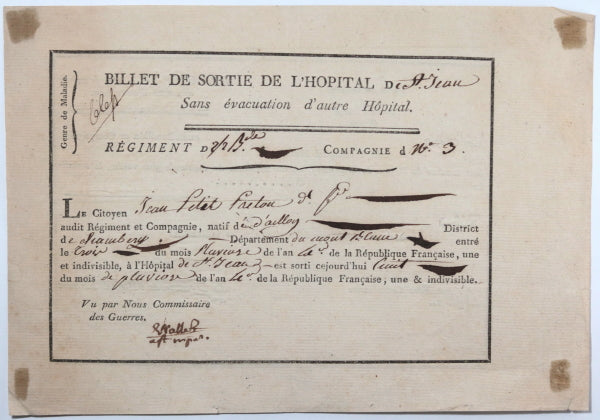 Genre de Maladie.
BILLET DE SORTIE DE L'HOPITAL De St. Jean
Sans évacuation d'autre Hôpital.
RÉGIMENT D COMPAGNIE d No. 3.
LE Citoyen Jean Petit
audit Régiment et Compagnie, natif d' District
de Département du mont Blanc entré
le trois du mois Pluviose de l'an 4e. de la République Française, une
et indivisible, à l'Hôpital de St. Jean est sorti cejourd'hui huit
du mois de pluviose de l'an 4e. de la République Française, une & indivisible.
Vu par Nous Commissaire
des Guerres.